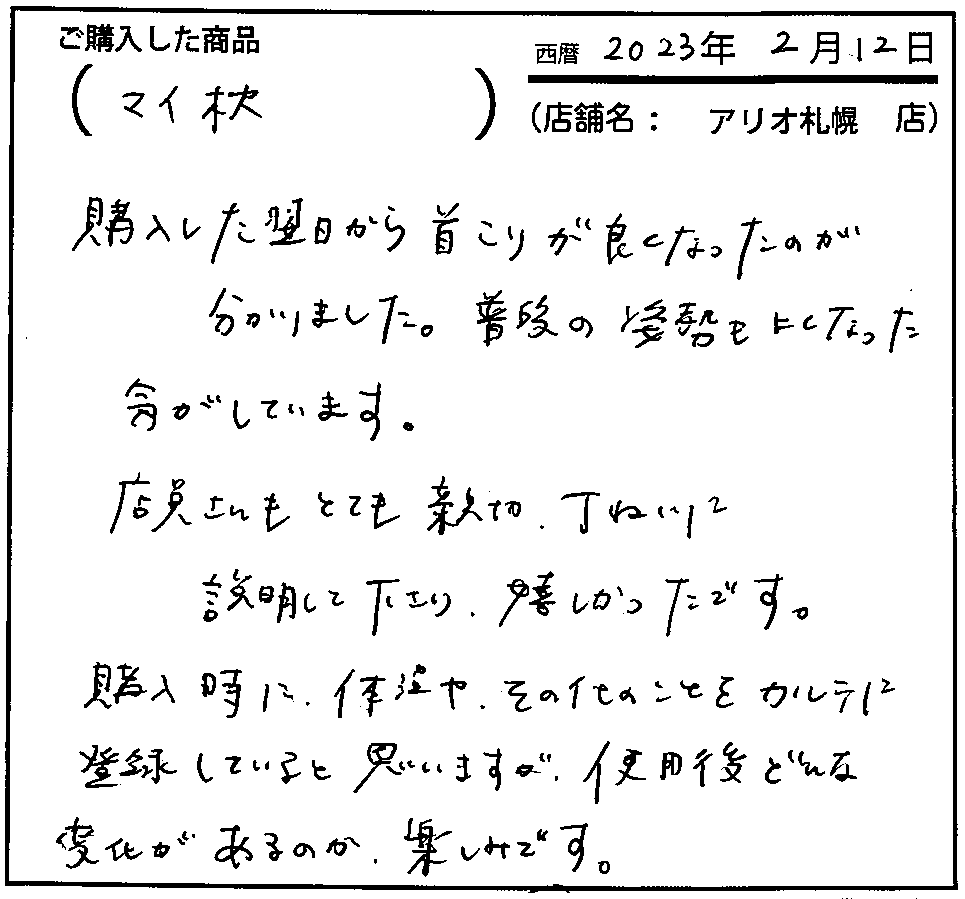 ご購入した商品
(マイ枕)
西暦 2023年 2月12日
(店舗名: アリオ札幌 店)
購入した翌日から首こりが良くなったのが
分かりました。普段の姿勢もよくなった
気がしています。
店員さんもとても親切、丁ねいに
説明して下さり、嬉しかったです。
購入時に、体温や、その他のことをカルテに
登録していると思いますが、使用後どんな
変化があるのか、楽しみです。